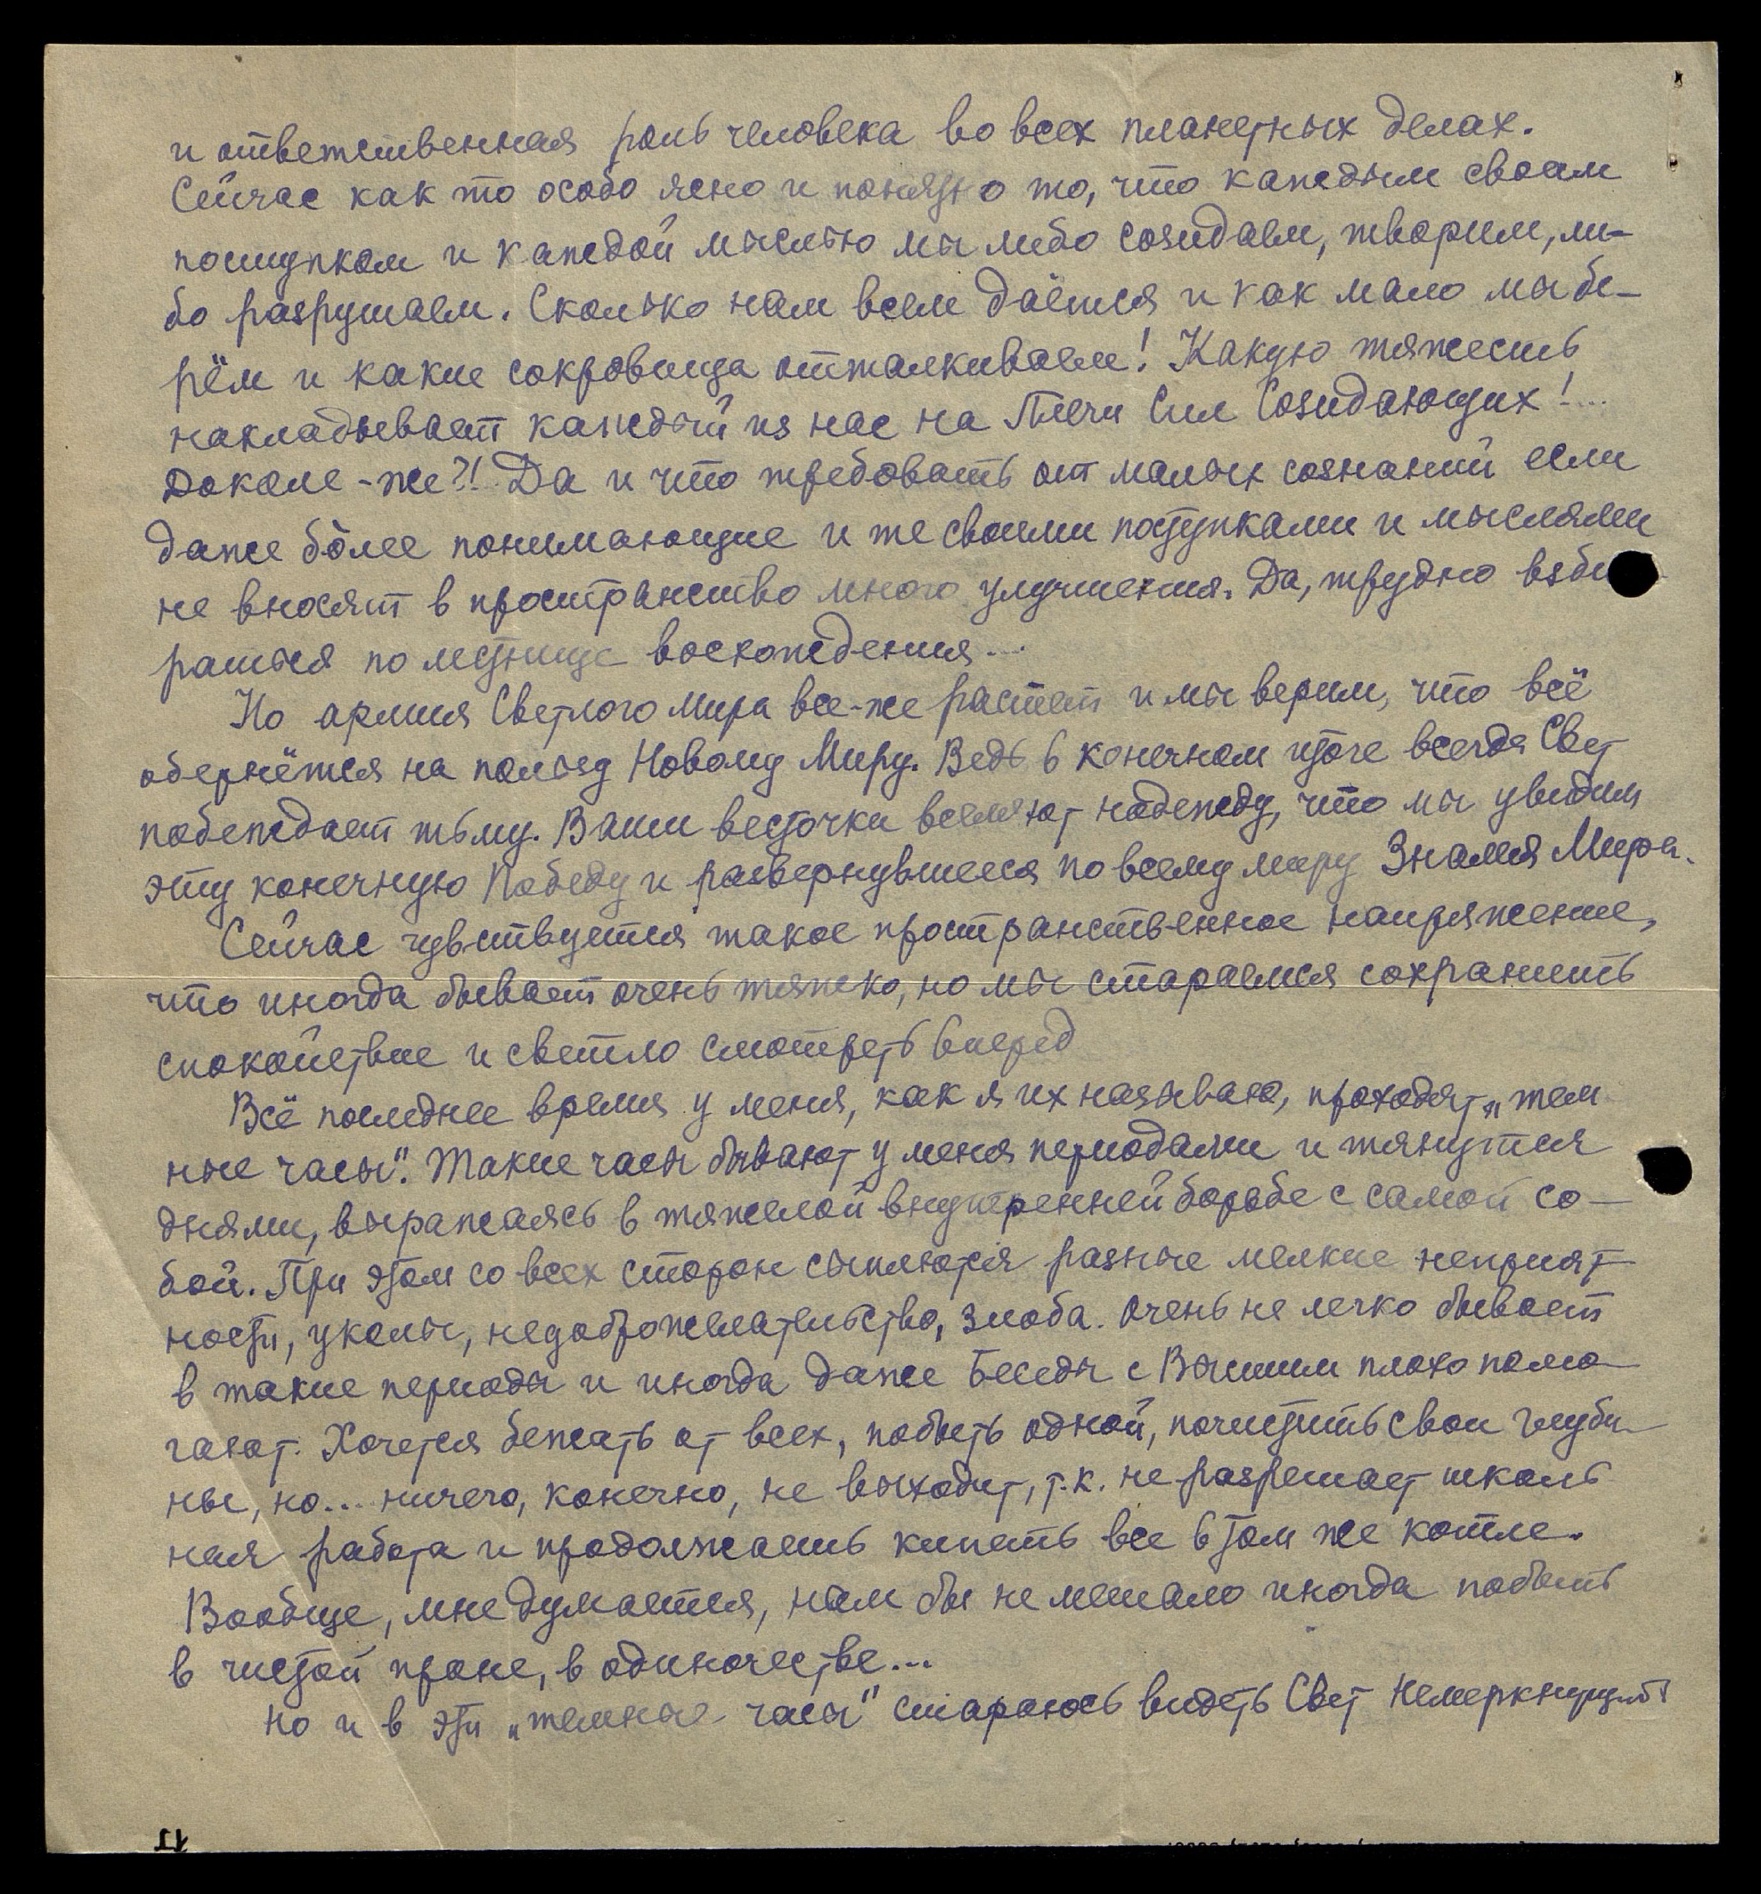 и ответственная роль человека во всех планетных делах.
Сейчас как то особо ясно и понятно то, что каждым своим
поступком и каждой мыслью мы либо созидаем, творим, ли-
бо разрушаем. Сколько нам всем даётся и как мало мы бе-
рём и какие сокровища отталкиваем! Какую тяжесть
накладывает каждый из нас на Плечи Сил Созидающих!...
Доколе-же?! Да и что требовать от малых сознаний если
даже более понимающие и же своими поступками и мыслями
не вносят в пространство много улучшения. Да, трудно взби
раться по лестнице восхождения...
Но армия Светлого Мира все-же растет и мы верим, что всё
обернётся на пользу Новому Миру. Ведь в конечном итоге всегда Свет
побеждает тьму. Ваши весточки вселяют надежду, что мы увидим
эту конечную Победу и развернувшееся по всему миру Знамя Мира.
Сейчас чувствуется такое пространственное напряжение,
что иногда бывает очень тяжко, но мы стараемся сохранить
спокойствие и светло смотреть вперед
Всё последнее время у меня, как я их называю, проходят „тем
ные часы". Такие часы бывают у меня периодами и тянутся
днями, выражаясь в тяжелой внутренней борьбе с самой со-
бой. При этом со всех сторон сыплются разные мелкие неприят-
ности, уколы, недоброжелательство, злоба. Очень не легко бывает
в такие периоды и иногда даже Беседы с Высшим плохо помо-
гают. Хочется бежать от всех, побыть одной, почистить свои глуби-
ны, но... ничего, конечно, не выходит, т.к. не разрешает школь
ная работа и продолжаешь кипеть все в том же котле.
Вообще, мне думается, нам бы не мешало иногда побыть
в чистой пране, в одиночестве...
Но и в эти „темные часы" стараюсь видеть Свет Немеркнущий
11